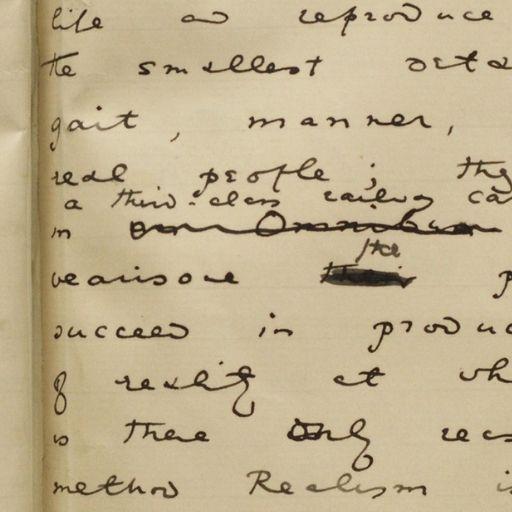 life and reproduce
the smallest deta
gait, manner,
real people; they
a third-class railway ca
in an Omnibus
the
wearisome
succeed in produc
of reality at wh
is there only reas
method Realism is